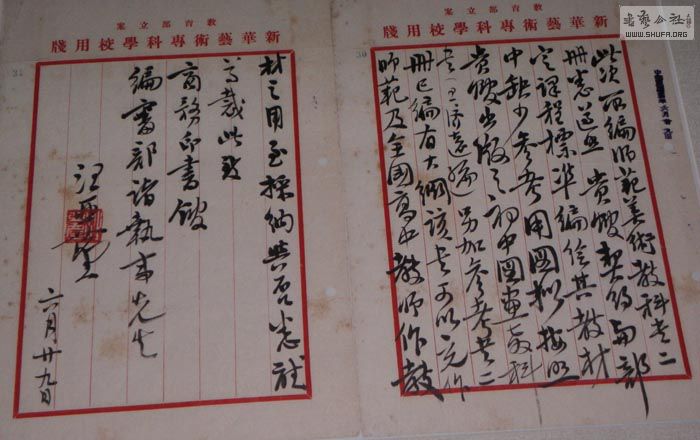 教育部立案
新華藝術專科學校用牋
此次所編師範美術教科書二
冊悉遵照 貴館契約 部
定課程標準編繪其教材
中缺少參考用圖擬按照
貴館出版之初中圖畫教科
書(王濟遠編)另加參考書二
冊已編有大綱該書可以充作
師範及全國高中教師作教
30
教育部立案
新華藝術專科學校用牋
材之用至採納與否悉聽
尊裁此致
商務印書館
編審部諸執事先生
汪亞塵
六月廿九日
31
書藝公社
WWW.SHUFA.ORG